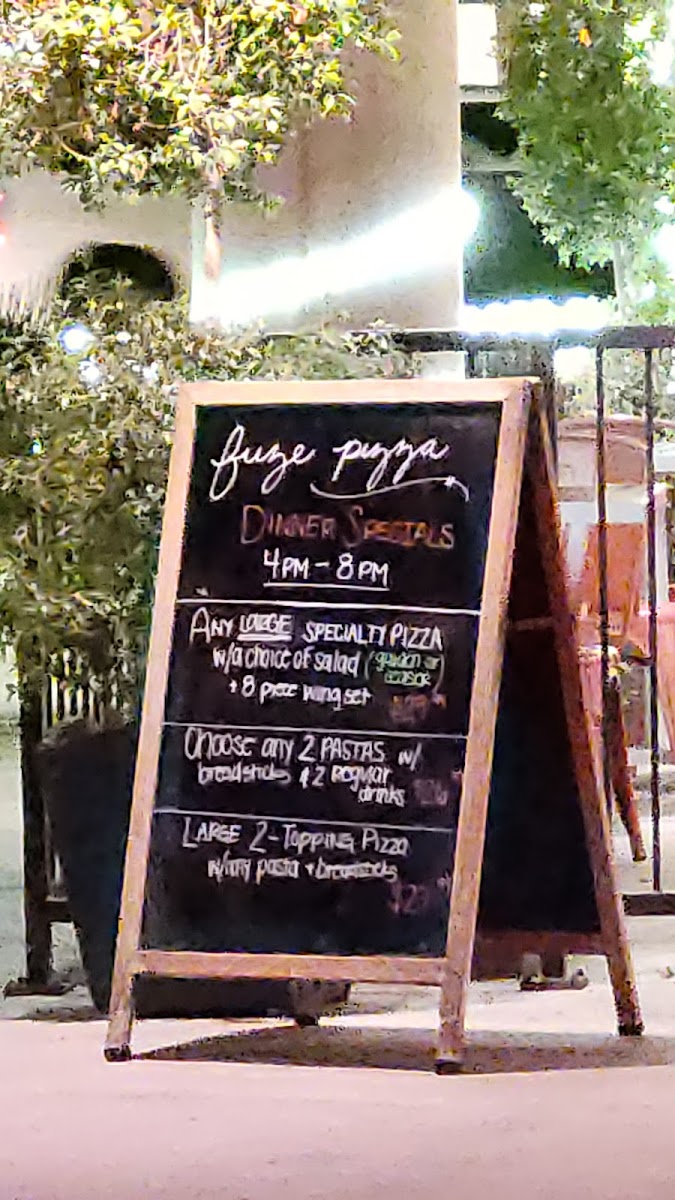 fuze pizza
DINNER SPECIALS
4PM - 8PM
ANY LARGE SPECIALTY PIZZA
w/a choice of salad (garden or
caesar)
+ 8 piece wing set
Choose any 2 PASTAS w/
breadsticks & 2 Regular
drinks
LARGE 2-TOPPING PIZZA
w/any pasta + breadsticks